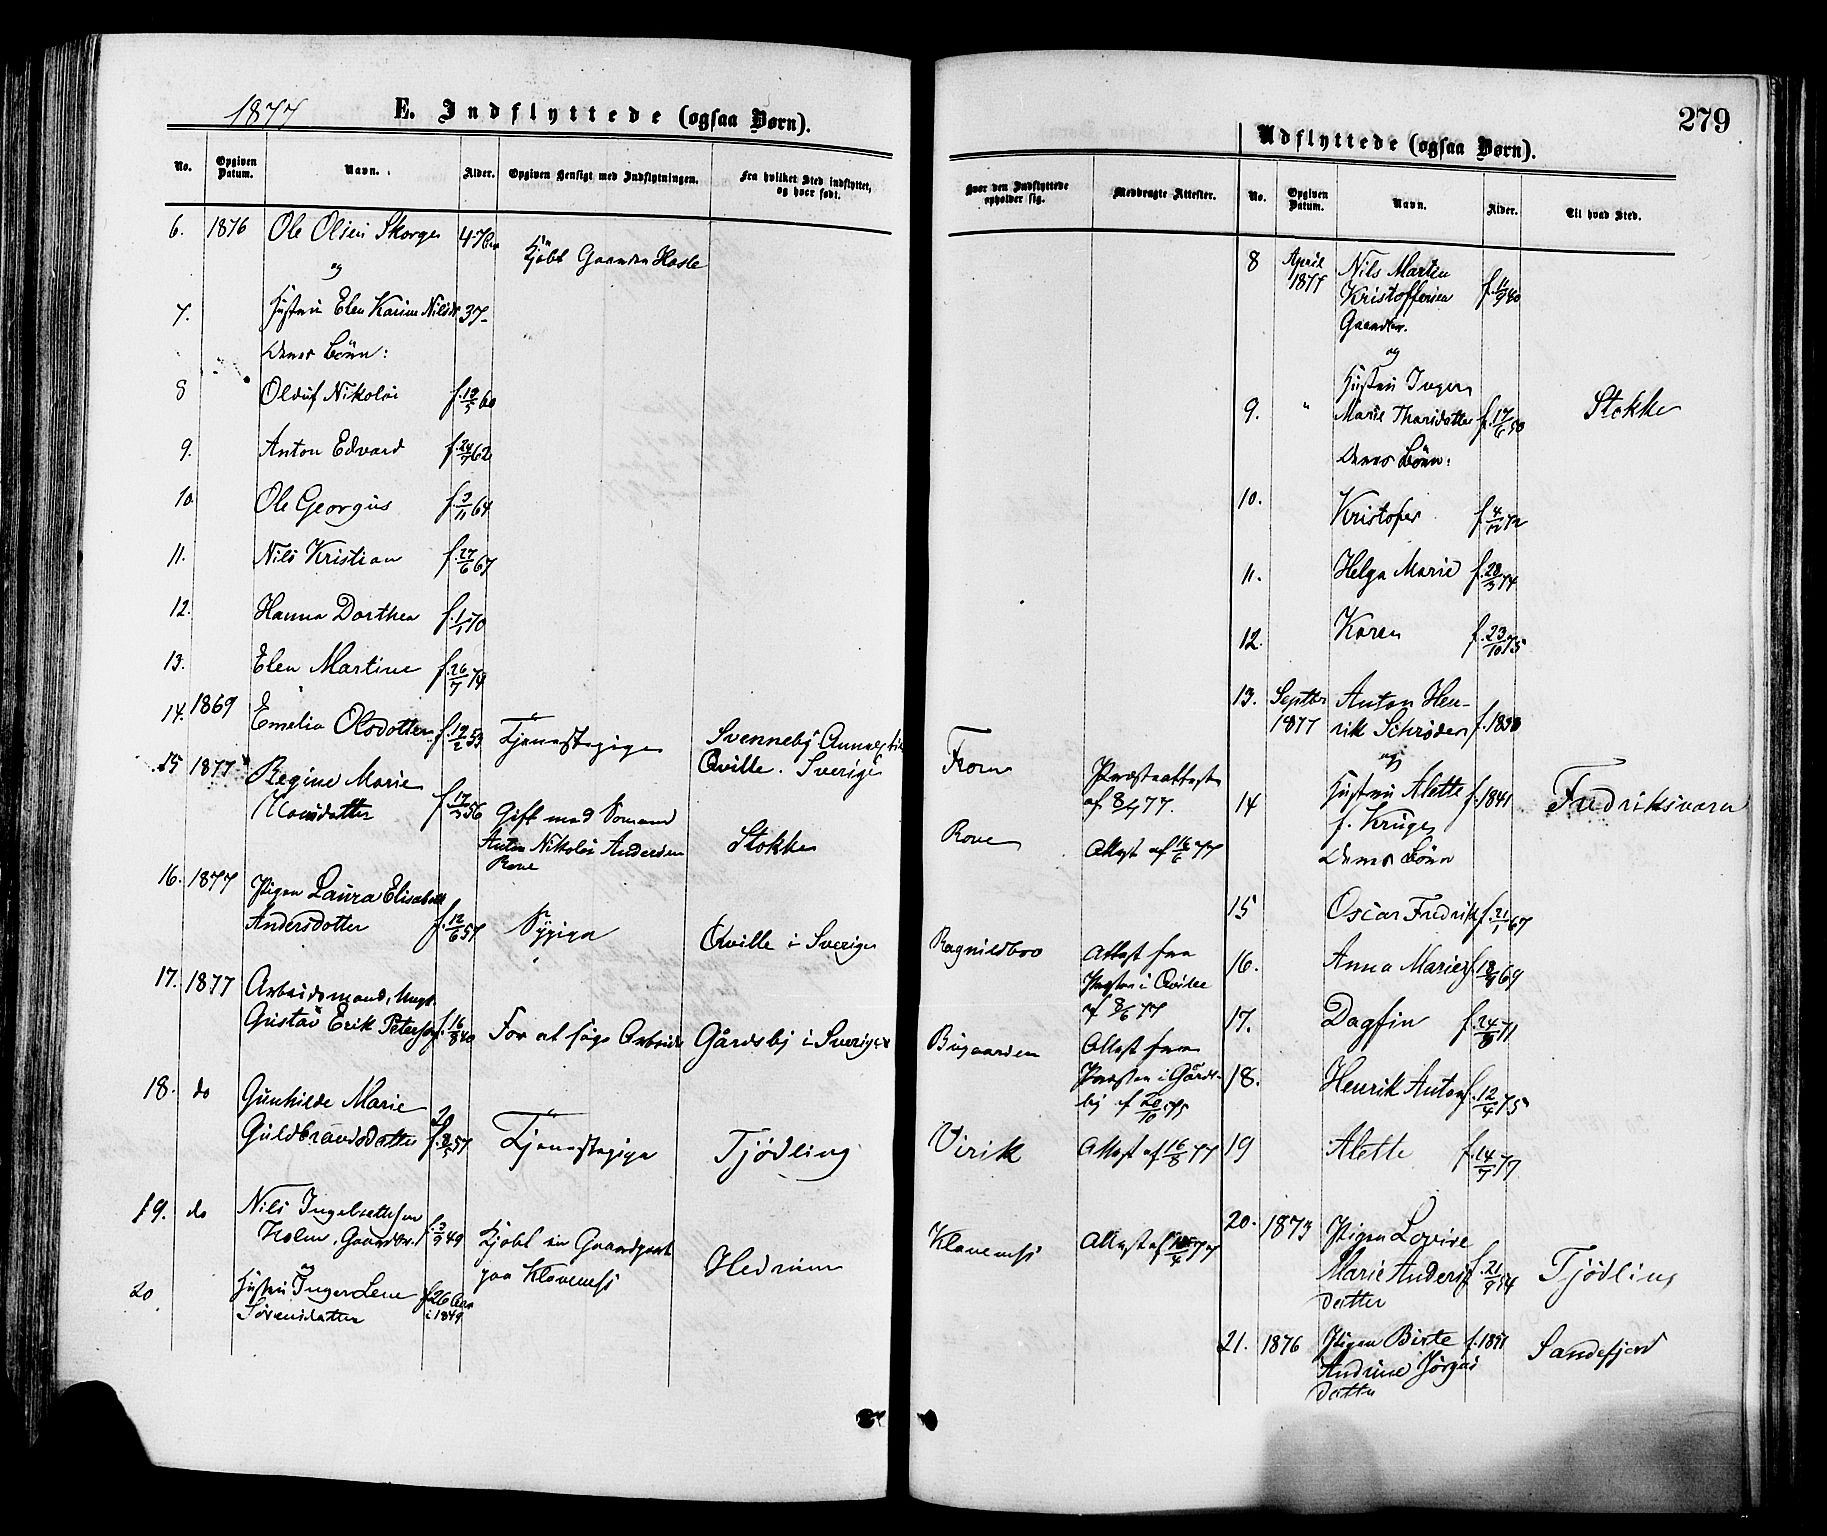 1877
E. Indflyttede (ogsaa Børn).
279
Udflyttede (ogsaa Børn).
No. Opgiven Datum. Navn. Alder. Opgiven Hensigt med Indflytningen. Fra hvilket Sted indflyttet, og hvor født.
Hvor den Indflyttede opholder sig. Medbragte Attester. No. Opgiven Datum. Navn. Alder. Til hvad Sted.
6. 1876 Ole Olsen Skorge 47 Kjøbt Gaarden Hasle
og
7. Hustru Elen Karine Nilsdt 37
Deres Børn:
8 Oluf Nikolai f. 13/5 60
9. Anton Edvard f. 24/7 62
10. Ole Georgius f. 3/11 64
11. Nils Kristian f. 27/6 67
12. Hanna Dorthea f. 1/1 70
13. Elen Martine f. 26/7 74
14. 1869 Emelia Olsdotter f. 19/2 53 Tjenestepige Svenneby Annex til
Qville. Sverige Præsteattest
af 8/1 77.
15 1877 Regine Marie
Hansdatter f. 17/5 56 Gift med Sømand
Anton Nikolai Andersen
Rove Stokke Rove Attest af 16/6 77
16. 1877 Pigen Laura Elisabeth
Andersdotter f. 12/6 57 Sypige Qville i Sverige Ragnildbo Attest fra
Præsten i Qville
af 8/6 77
17. 1877 Arbeidsmand, Ungk.
Gustav Erik Peterson f. 16/8 40 For at søge Arbeide Gårdsby i Sverige Bugaarden Attest fra
Præsten i Gårds-
by af 20/10 75
18. do Gunhilde Marie
Guldbrandsdatter 57 Tjenestepige Tjødling Virik Attest af 16/8 77
19. do Nils Ingebretsen
Holm, Gaardbr. f. 3/9 49 Kjøbt en Gaardpart
paa Klaveness Hedrum Klaveness Attest af
og
20 Hustru Inger Lene
Sørensdatter 26 Aar
i 1849
8 April
1877 Nils Martin
Kristoffersen
Gaardbr.
og
9. " Hustru Inger
Marie Thorsdatter f. 17/6 50 Stokke
Deres Børn:
10. Kristofer f. 4/12 72
11. Helga Marie f. 20/3 74
12. Karen f. 23/10 75
13. Septbr
1877 Anton Hen-
rik Schrøder f. 1838
og
14 Hustru Alette f. 1841 Fredriksværn
f. Kruge
Deres Børn
15 Oscar Fredrik f. 21/1 67
16. Anna Marie 69
17. Dagfin f. 71
18. Henrik Anton f. 12/4 75
19 Alette f. 14/7 77.
20. 1873 Pigen Lovise
Marie Anders
datter f. 21/9 54 Tjødling
21. 1876 Pigen Birte f. 1851
Andrine Jørgens
datter Sandefjord